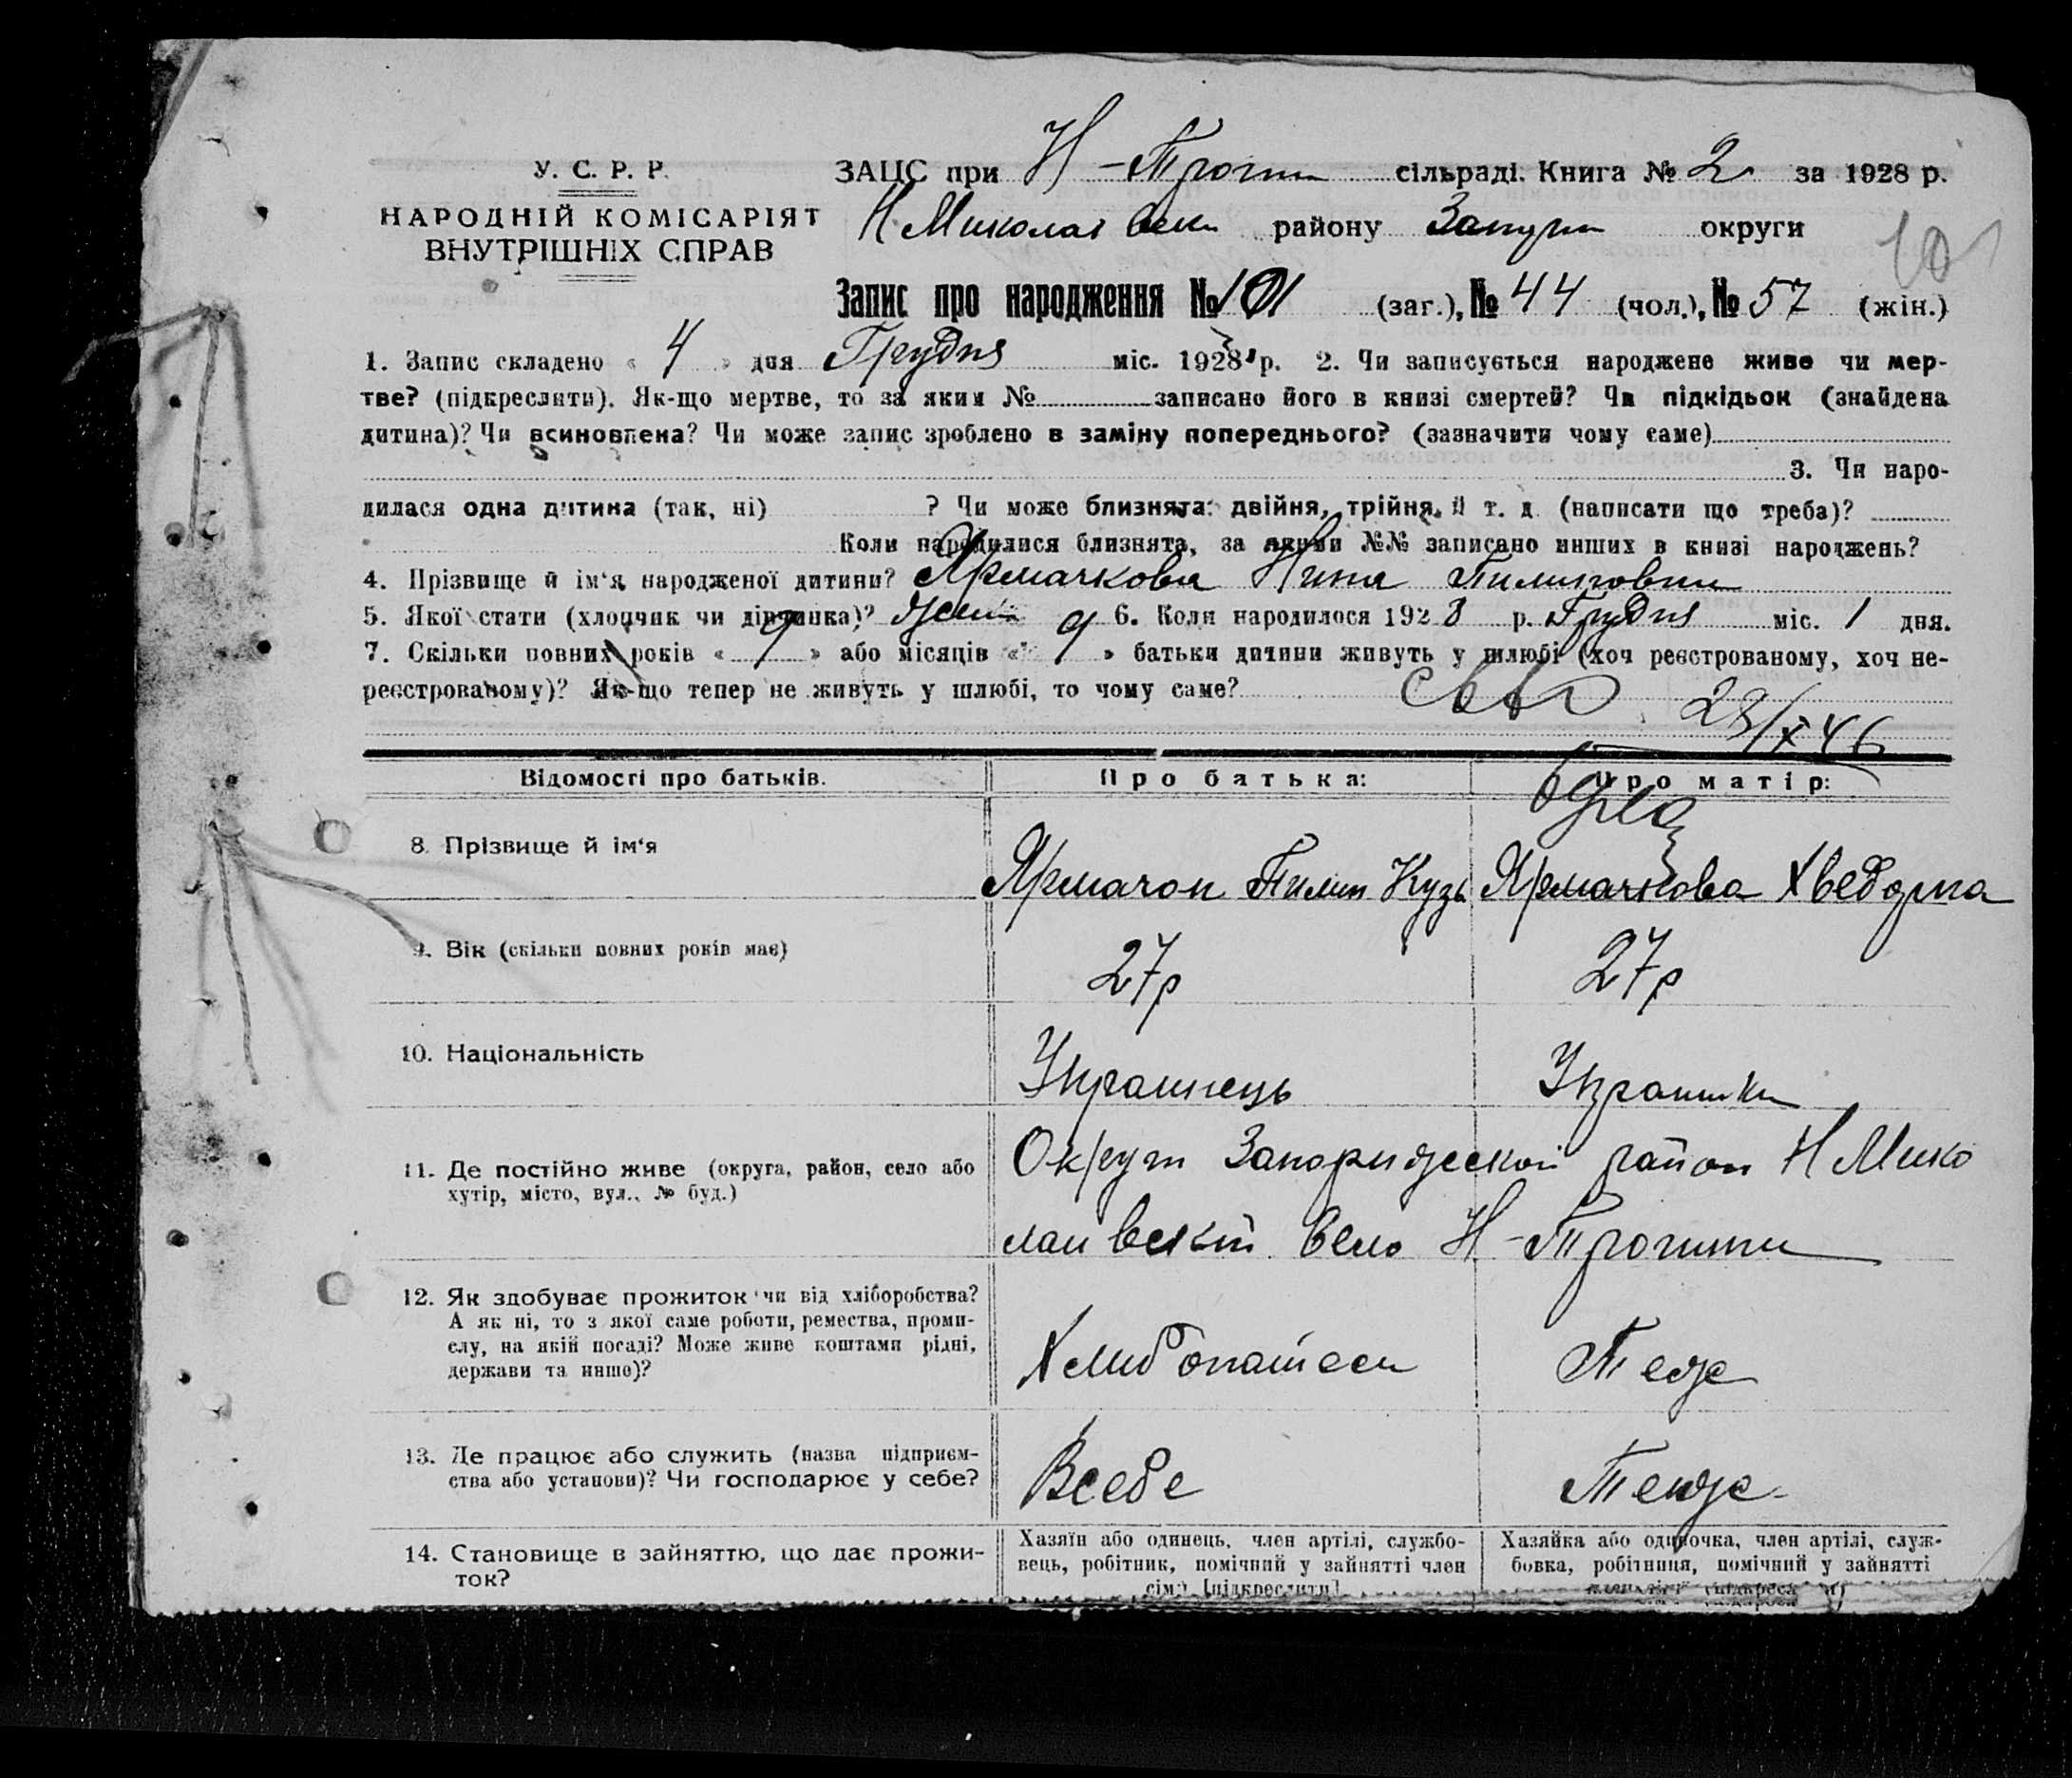 У. С. Р. Р.
НАРОДНІЙ КОМІСАРІЯТ
ВНУТРІШНІХ СПРАВ
ЗАЦС при Н-Трогии сільраді. Книга № 2 за 1928 р.
Н Миколаівськ району Запорі округи
101
Запис про народження № 101 (заг.), № 44 (чол.), № 57 (жін.)
1. Запис складено « 4 » дня Грудня міс. 1928 р. 2. Чи записується народжене живе чи мер-
тве? (підкреслити). Як-що мертве, то за яким № записано його в книзі смертей? Чи підкідьок (знайдена
дитина)? Чи всиновлена? Чи може запис зроблено в заміну попереднього? (зазначити чому саме)
3. Чи наро-
дилася одна дитина (так, ні) ? Чи може близнята: двійня, трійня й т. д. (написати що треба)?
Коли народилися близнята, за якими №№ записано инших в книзі народжень?
4. Прізвище й ім‘я народженої дитини? Ярмачкова Нина Пилиповна
5. Якої стати (хлопчик чи дівчинка)? жен 6. Коли народилося 1928 р. Грудня міс. 1 дня.
7. Скільки повних років « 9 » або місяців « 9 » батьки дитини живуть у шлюбі (хоч реєстрованому, хоч не-
реєстрованому)? Як-що тепер не живуть у шлюбі, то чому саме?
28/X 46
Відомості про батьків. Про батька: Про матір:
8. Прізвище й ім‘я Ярмачок Пилип Кузь Ярмачкова Хведорка
9. Вік (скільки повних років має) 27р 27р
10. Національність Украинець Украинка
11. Де постійно живе (округа, район, село або
хутір, місто, вул., № буд.)
Округ Запорижескои район Н Мико
лаивский село Н-Трогини
12. Як здобуває прожиток чи від хліборобства?
А як ні, то з якої саме роботи, ремества, проми-
слу, на якій посаді? Може живе коштами рідні,
держави та инше)?
Хлибопашеси Теже
13. Де працює або служить (назва підприєм-
ства або установи)? Чи господарює у себе?
Всебе Теже
14. Становище в зайняттю, що дає прожи-
ток?
Хазяїн або одинець, член артілі, службо-
вець, робітник, помічний у зайнятті член
сім‘ї [підкреслити]
Хазяйка або одиночка, член артілі, служ-
бовка, робітниця, помічний у зайнятті